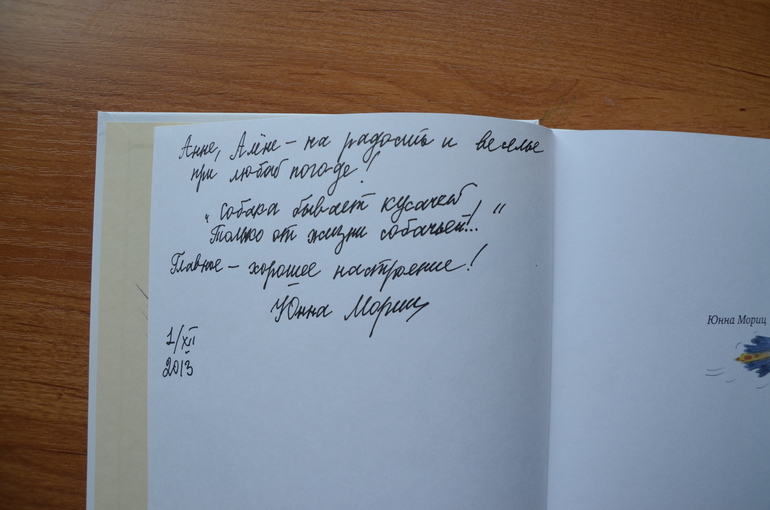 Анне, Алёне – на радость и веселье
при любой погоде!
„Собака бывает кусачей
Только от жизни собачьей!.."
Главное – хорошее настроение!
Юнна Мориц
1/XII
2013
Юнна Мориц